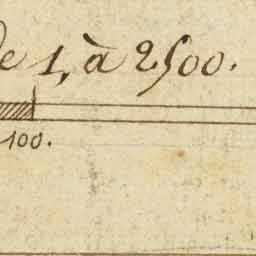 de 1, à 2500.
100.